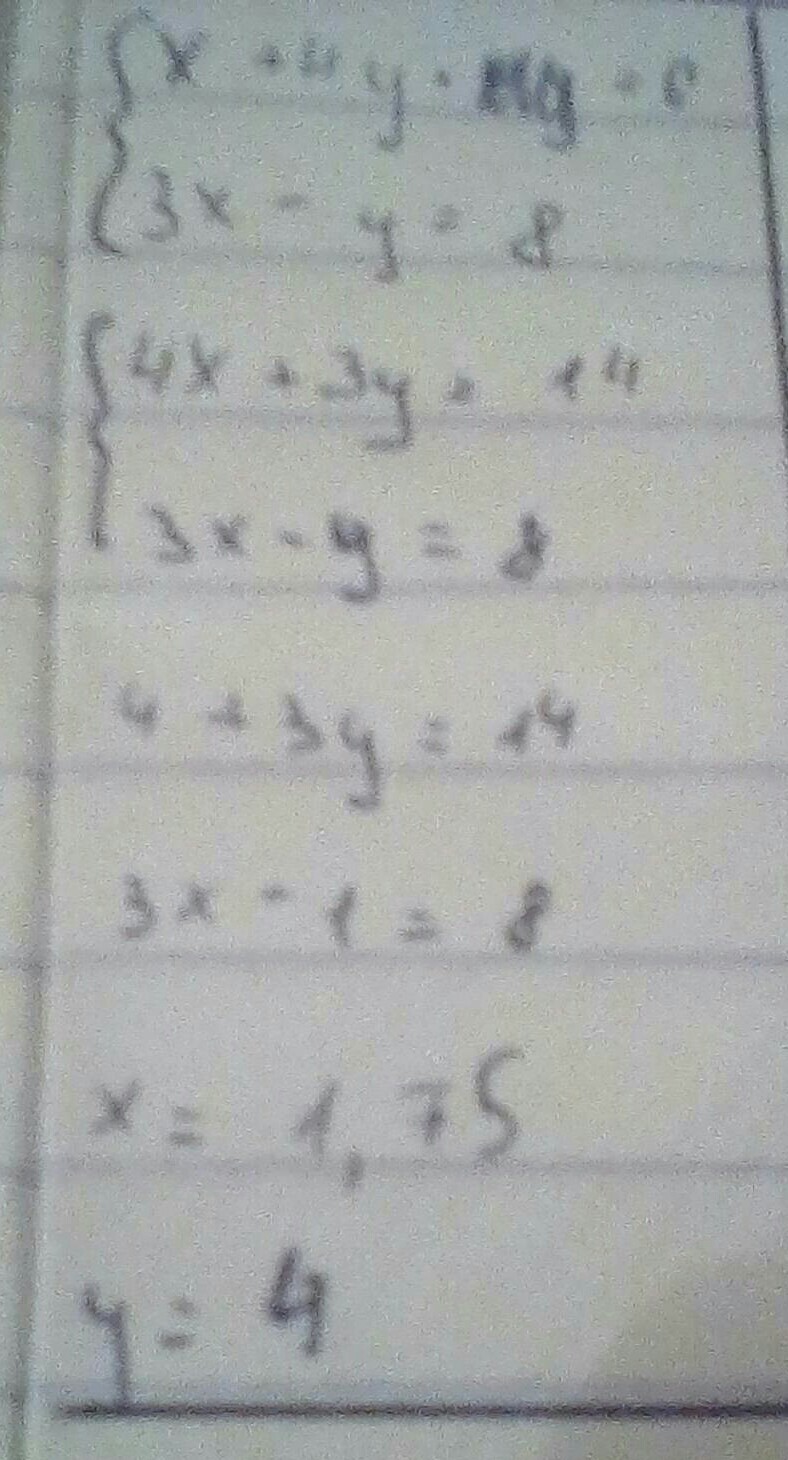 x + 4y =
3x - y = 8
4x + 3y = 14
3x - y = 8
4 + 3y = 14
3x - 1 = 8
x = 1,75
y = 4